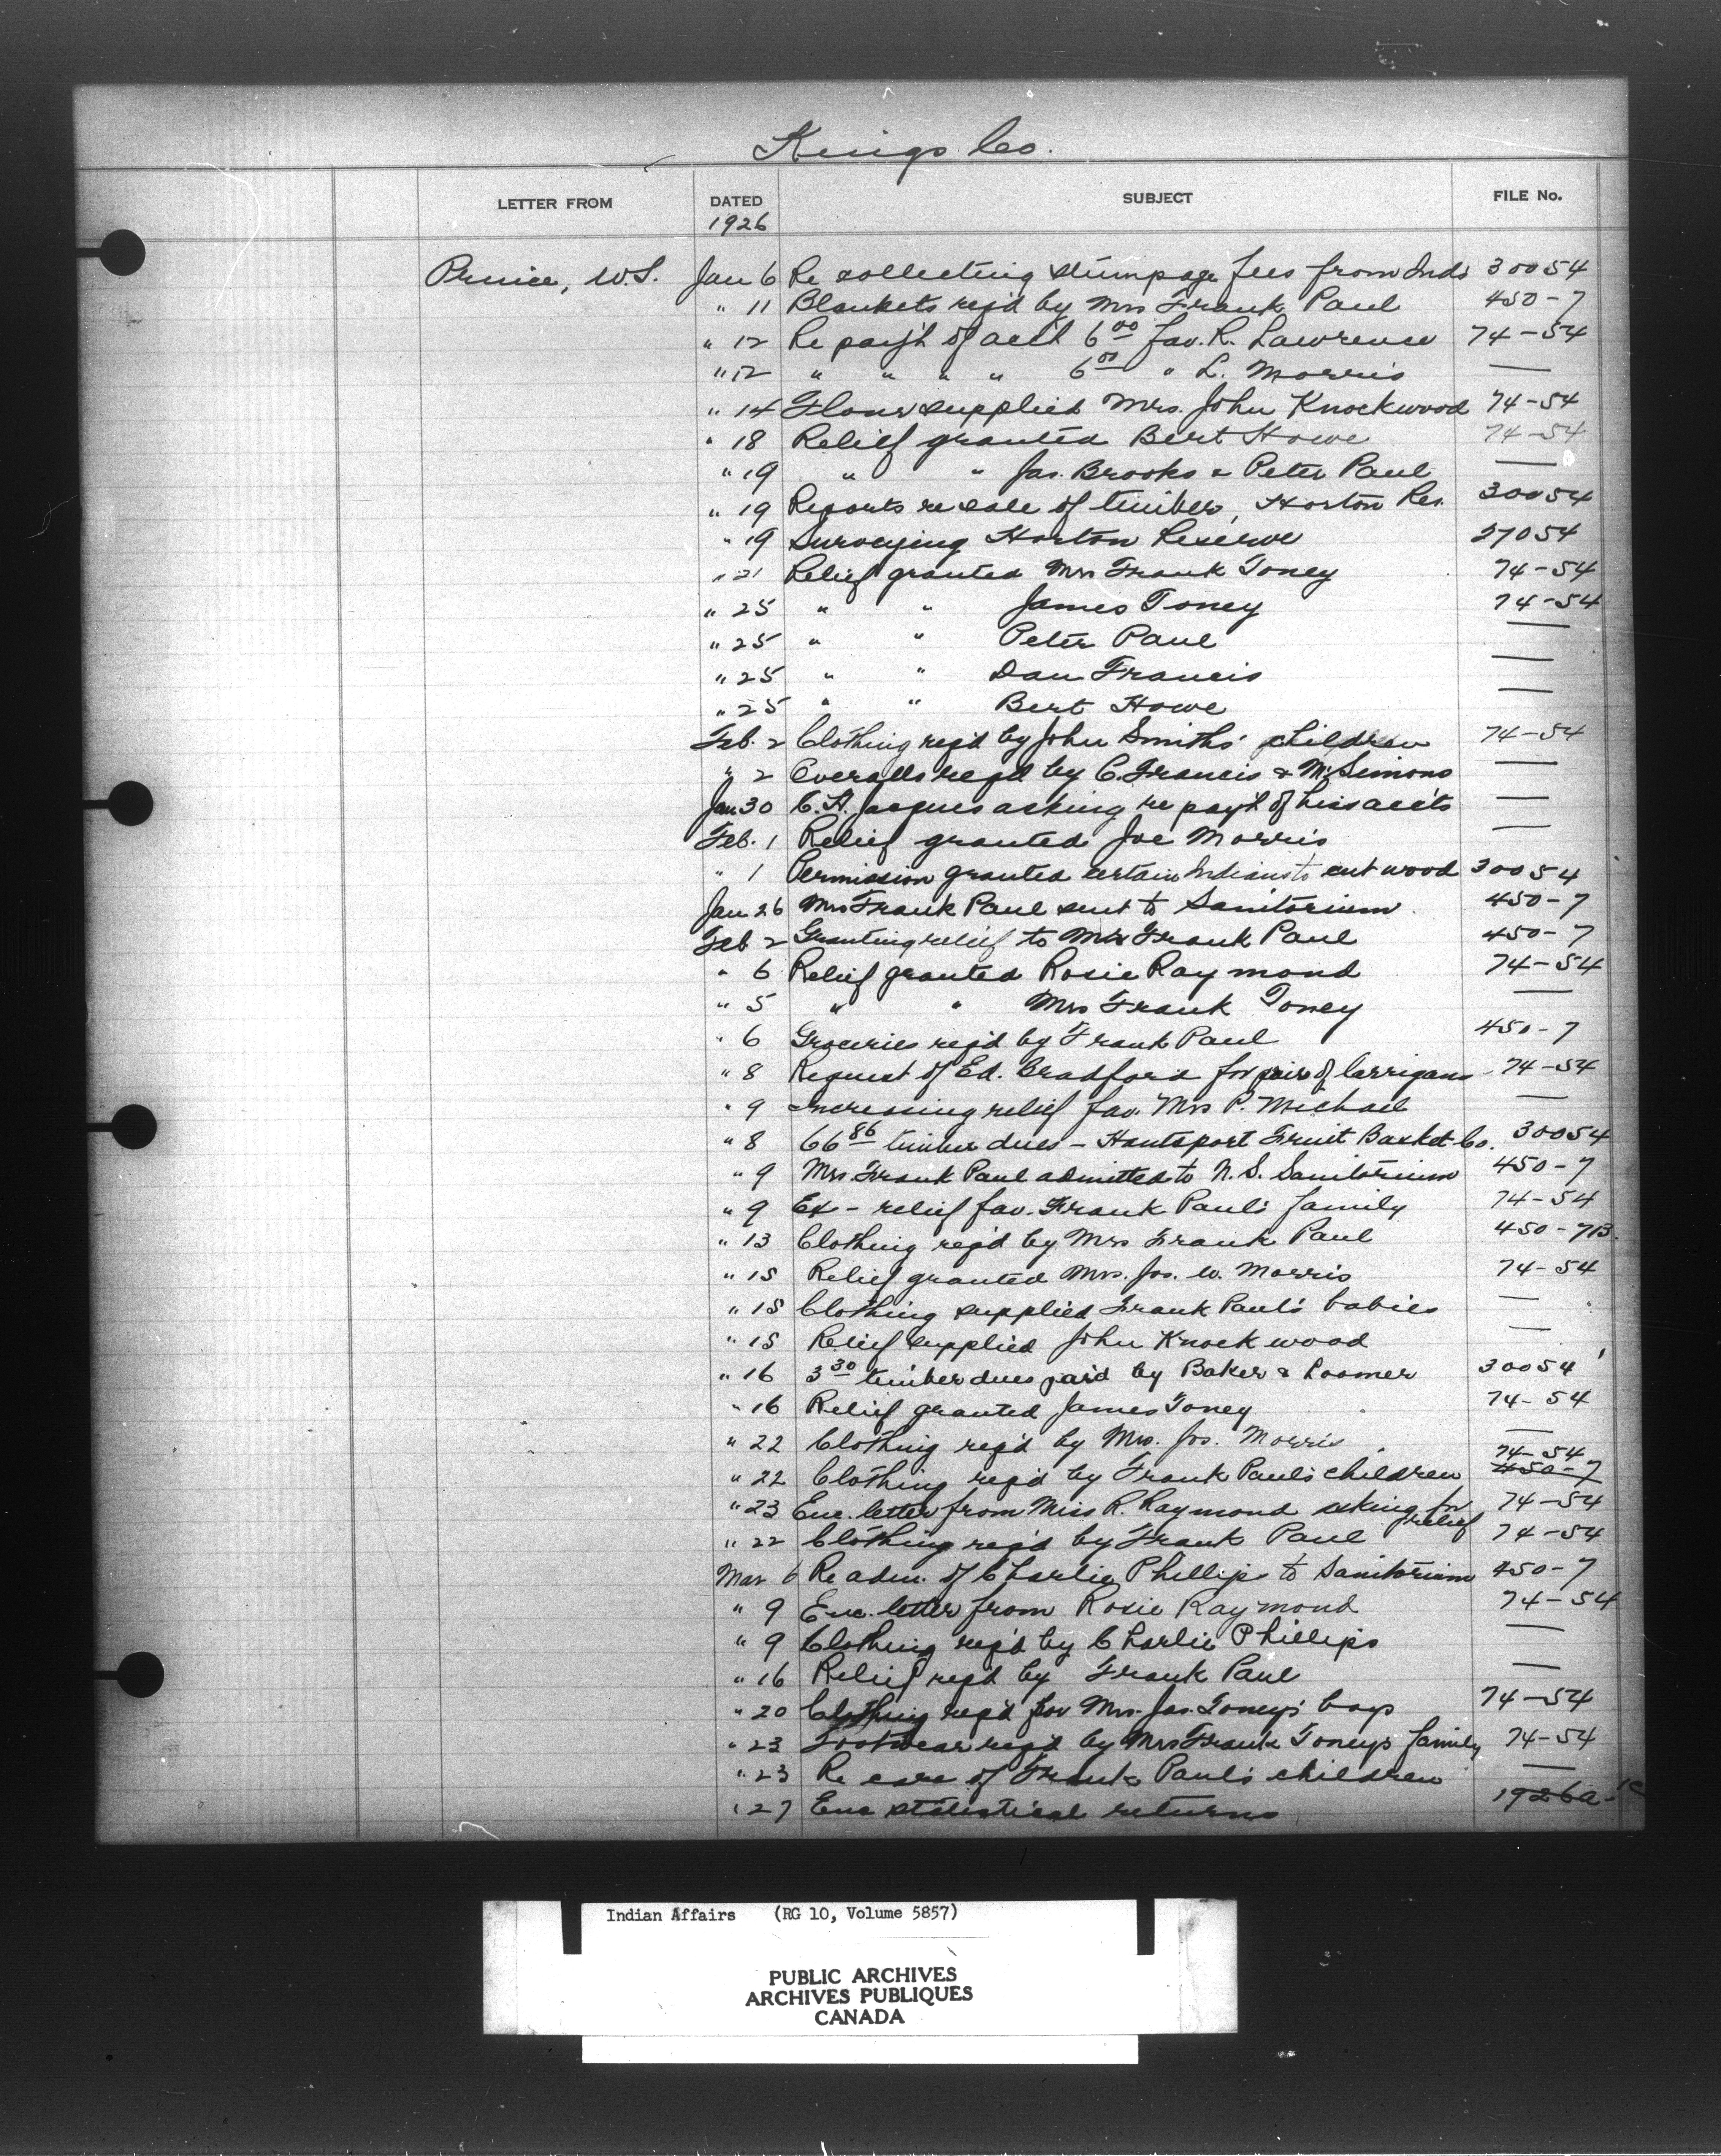 Kings Co.
LETTER FROM DATED SUBJECT FILE No.
1926
W.S. Jan 6 Re collecting stumpage fees from Inds 30054
" 11 Blankets req'd by Mrs Frank Paul 450-7
" 12 Re paym't of acc't 6 00 fav. R. Lawrence 74-54
" 12 " " " " 6 00 " L. Morris —
" 14 Flour supplied Mrs. John Knockwood 74-54
" 18 Relief granted Bert Howe 74-54
" 19 " " Jas. Brooks & Peter Paul —
" 19 Reports re sale of timber, Horton Res. 30054
" 19 Surveying Horton Reserve 27054
" 21 Relief granted Mrs Frank Toney 74-54
" 25 " " James Toney 74-54
" 25 " " Peter Paul —
" 25 " " Dan Francis —
" 25 " " Bert Howe —
Feb. 2 Clothing req'd by John Smiths' children 74-54
" 2 Overalls req'd by C. Francis & M. Simons —
Jan 30 C. H. Jacques asking re paym't of his acc'ts —
Feb. 1 Relief granted Joe Morris —
" 1 Permission granted certain Indians to cut wood 30054
Jan 26 Mrs Frank Paul sent to Sanitorium 450-7
Feb 2 Granting relief to Mrs Frank Paul 450-7
" 6 Relief granted Rosie Raymond 74-54
" 5 " " Mrs Frank Toney —
" 6 Groceries req'd by Frank Paul 450-7
" 8 Request of Ed. Bradford for pair of larrigans 74-54
" 9 Increasing relief fav. Mrs P. Michael —
" 8 66 86 timber dues - Hantsport Fruit Basket Co. 30054
" 9 Mrs. Frank Paul admitted to N.S. Sanitorium 450-7
" 9 Ex - relief fav. Frank Paul's family 74-54
" 13 Clothing req'd by Mrs Frank Paul 450-7B.
" 15 Relief granted Mrs. Jos. W. Morris 74-54
" 15 Clothing supplied Frank Paul's babies —
" 15 Relief supplied John Knockwood —
" 16 3 30 timber dues paid by Baker & Loomer 30054
" 16 Relief granted James Toney 74-54
" 22 Clothing req'd by Mrs. Jos. Morris —
74-54
" 22 Clothing req'd by Frank Paul's children 450-7
" 23 Enc. letter from Miss R. Raymond asking for relief 74-54
" 22 Clothing req'd by Frank Paul 74-54
Mar 6 Re adm. of Charlie Phillips to Sanitorium 450-7
" 9 Enc. letter from Rosie Raymond 74-54
" 9 Clothing req'd by Charlie Phillips —
" 16 Relief req'd by Frank Paul —
" 20 Clothing req'd for Mrs. Jas. Toney's boys 74-54
" 23 Footwear req'd by Mrs Frank Toneys family 74-54
" 23 Re care of Frank Paul's children —
" 27 Enc statistical returns
Indian Affairs (RG 10, Volume 5857)
PUBLIC ARCHIVES
ARCHIVES PUBLIQUES
CANADA